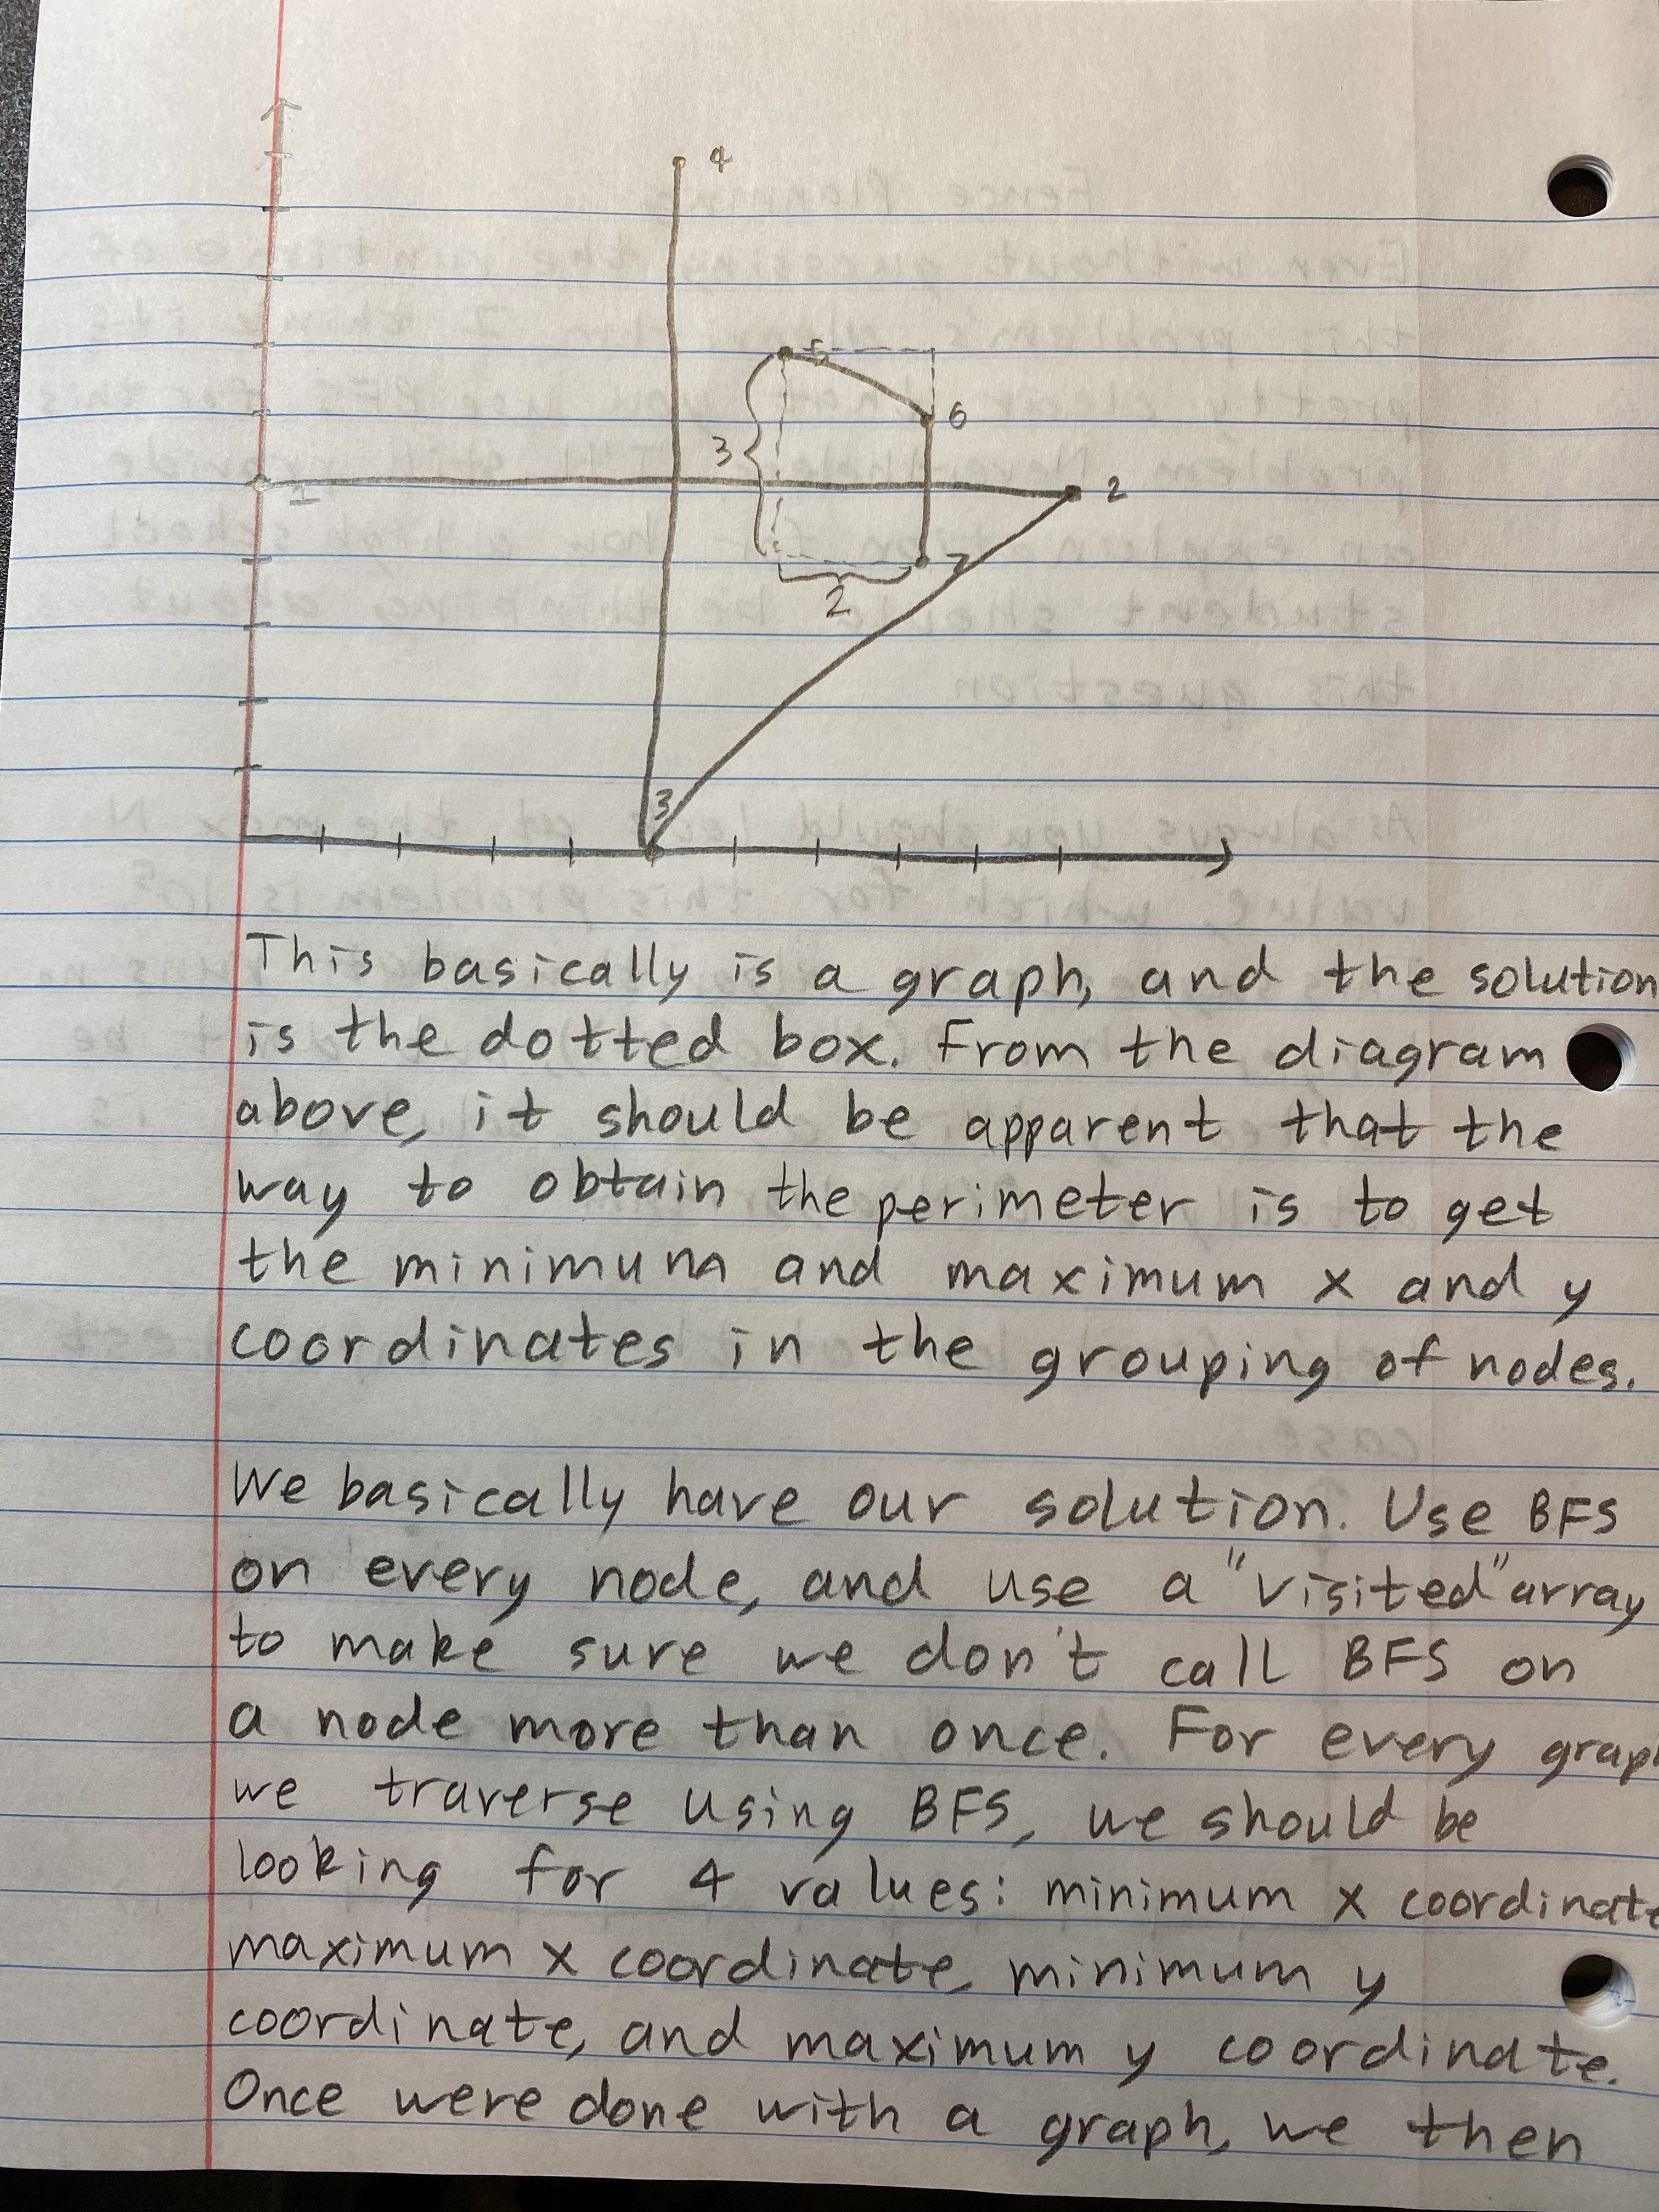 4
5
6
3
1
2
7
2
3
This basically is a graph, and the solution
is the dotted box. From the diagram
above, it should be apparent that the
way to obtain the perimeter is to get
the minimum and maximum x and y
coordinates in the grouping of nodes.
We basically have our solution. Use BFS
on every node, and use a "visited" array
to make sure we don't call BFS on
a node more than once. For every graph
we traverse using BFS, we should be
looking for 4 values: minimum x coordinate
maximum x coordinate, minimum y
coordinate, and maximum y coordinate.
Once were done with a graph, we then